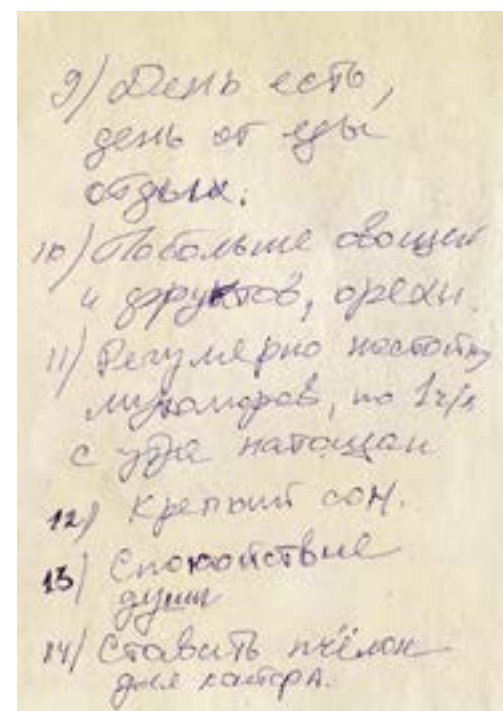 9) День есть,
день от еды
отдых.
10) Побольше овощей
и фруктов, орехи.
11) Регулярно настойку
мухоморов, по 1 ч/л
с утра натощак
12) Крепкий сон.
13) Спокойствие
души
14) Ставить пчёлок
для